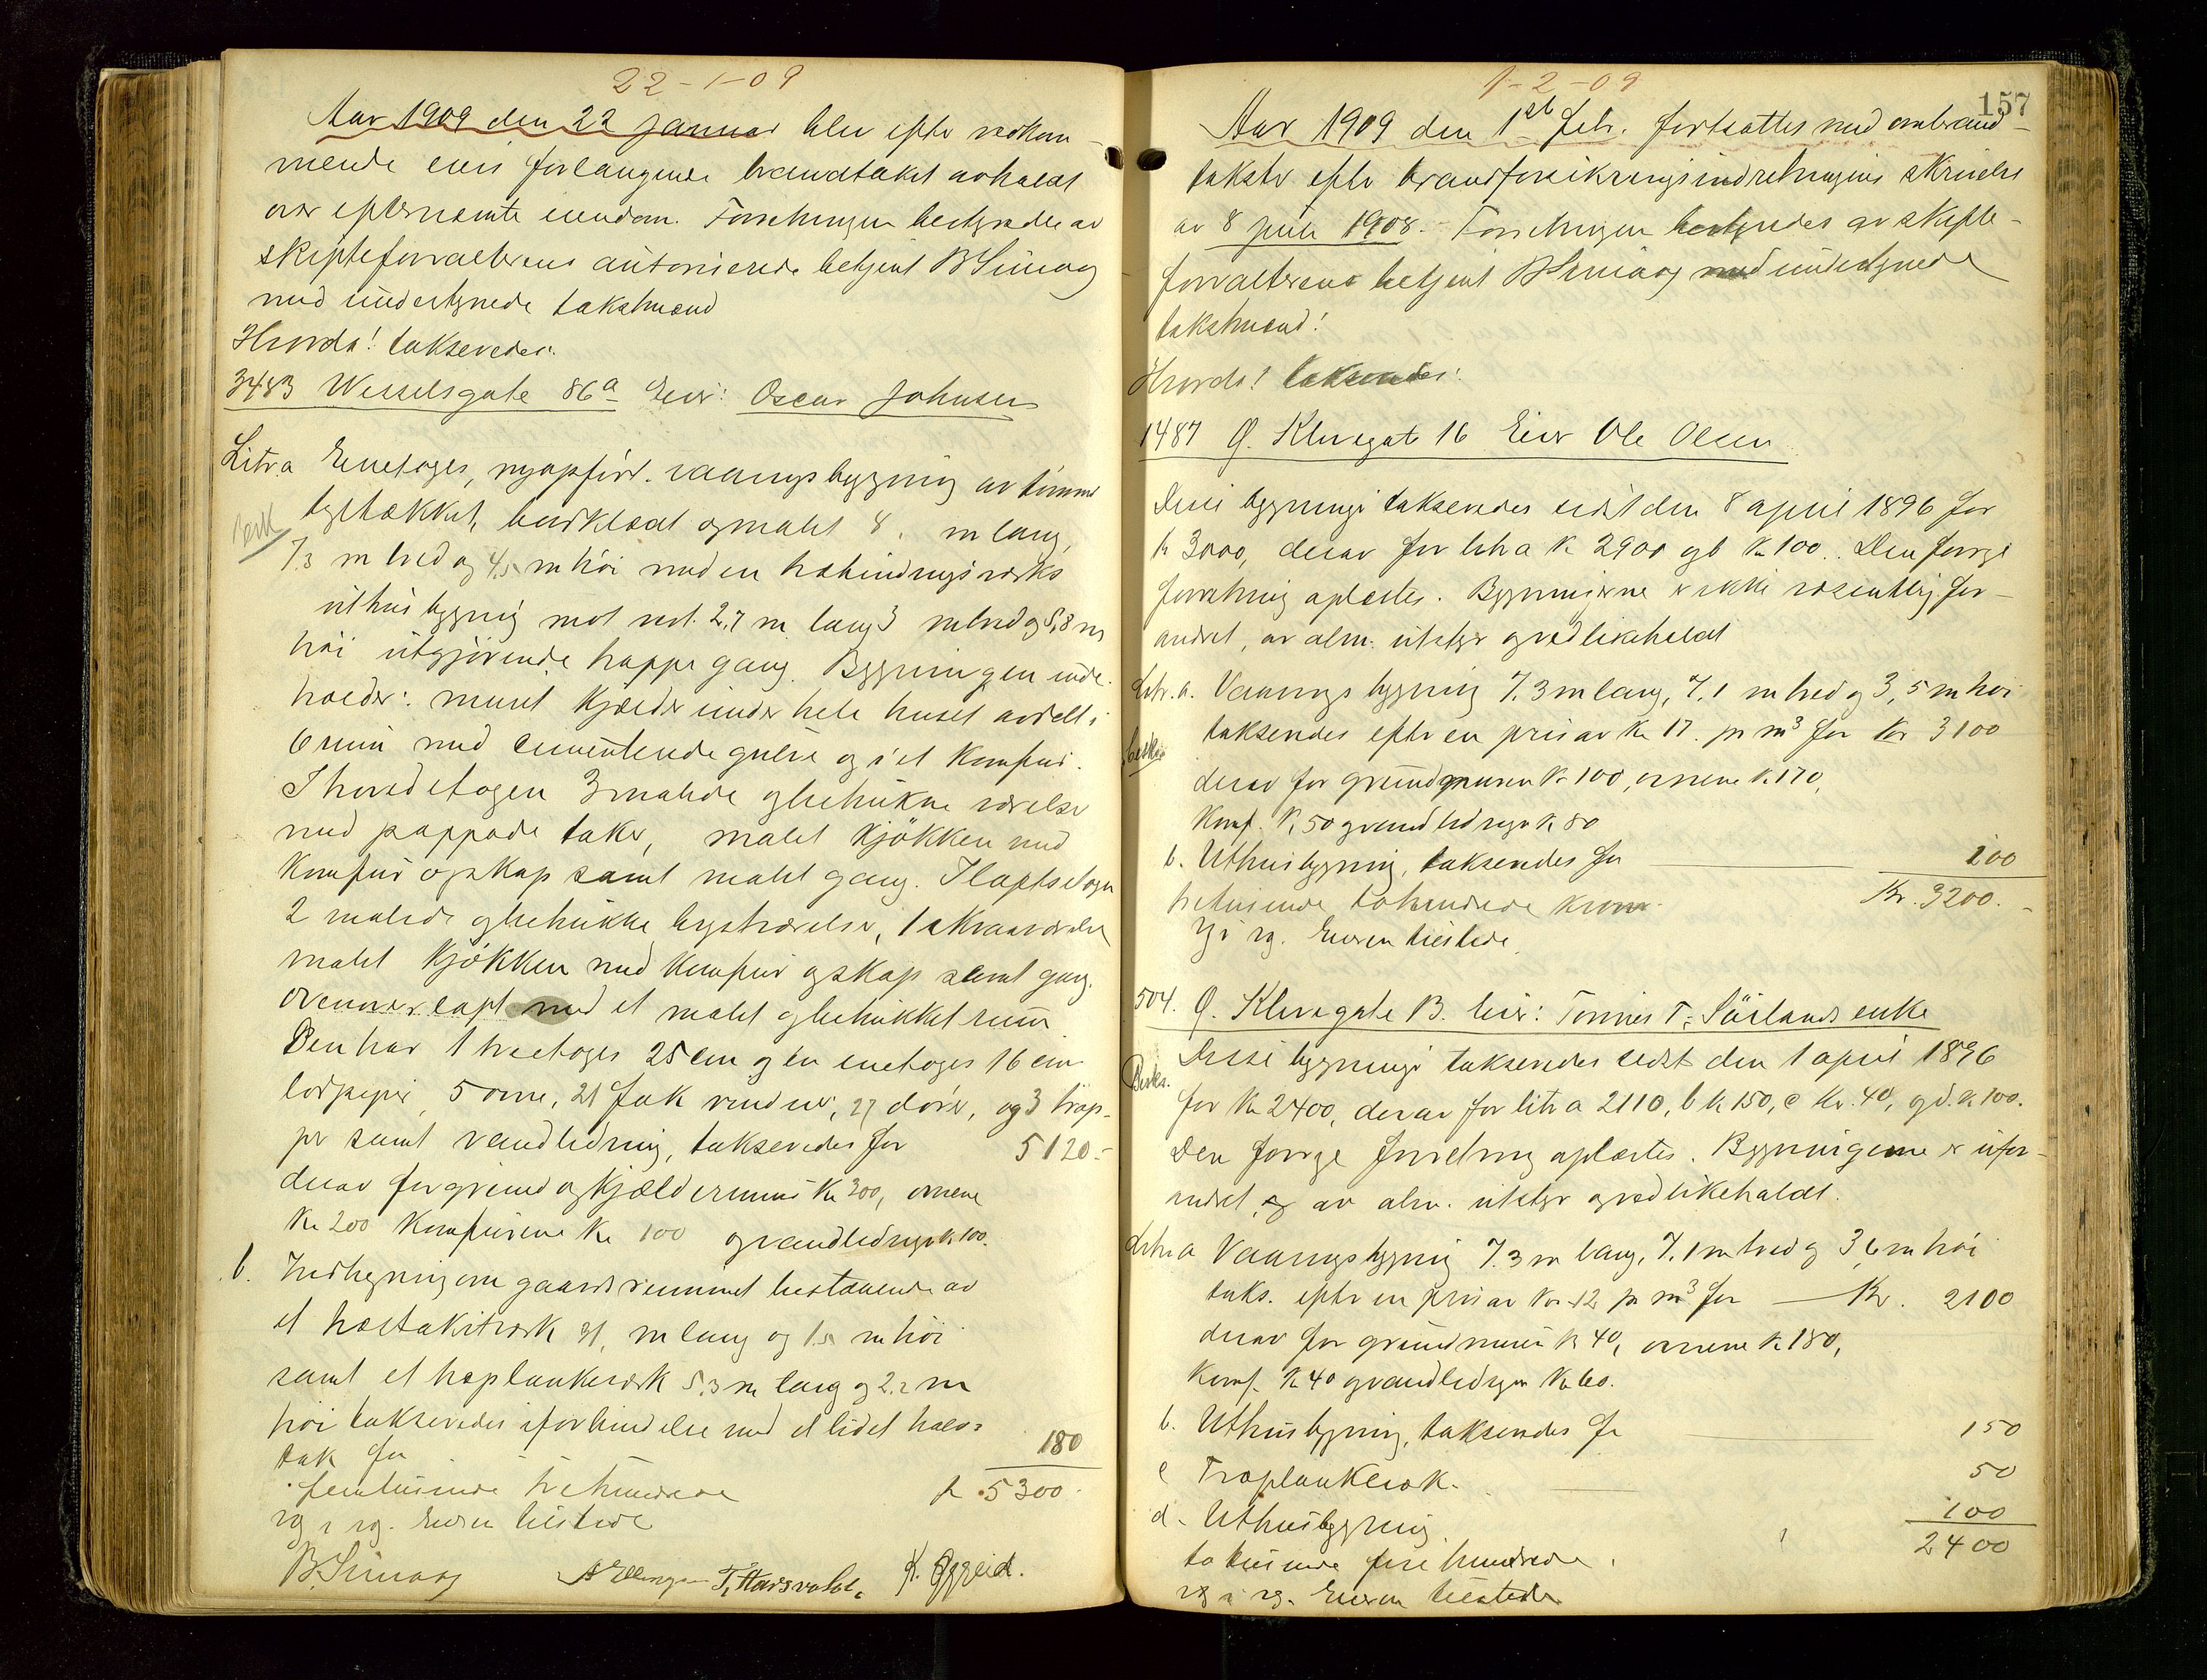 22-1-09
Aar 1909 den 22 januar blev efter vedkom-
mende eiers forlangende brandtakst avholdt
over efternævnte eiendom. Forretningen bestyredes av
skifteforvalterens autoriserede betjent B Simag
med undertegnede takstmænd
Hvorda! takseredes:
3483 Wesselsgate 86a Eier: Oscar Johnsen
Litra Enetages, nyopført vaaningsbygning av tømmer
tegltækket, bordklædt og malet 8, m lang,
besk
7.3 m bred og 4,5 m høi med en træbindingsverks
uthusbygning mot vest. 2,7 m lang 3 m bred og 5,8 m
høi utgjørende trappegang. Bygningen inde-
holder: muret kjælder under hele huset avdelt i
6 rum med cementerede gulve og i et komfur.
I hovedetagen 3 malede og betrukne værelser
med pappede taker, malet kjøkken med
komfur og skap samt malet gang. I loftsetagen
2 malede og betrukke kvistværelser, 1 skraaværelse
malet kjøkken med komfur og skap samt gang.
Ovenover loft med et malet og betrukket rum
Den har 1 toetages 25 cm og en enetages 16 cm
lodpiper, 5 ovne, 21 fak vinduer, 27 dører, og 3 trap-
per samt vandledning, takseredes for 5120.-
derav for grund og kjældermur Kr 300, ovnene
Kr 200 Komfurene Kr 100 og vandledningen kr 100.
b. Indhegning om gaardsrummet bestaaende av
et træstakitverk 31, m lang og 1.5 m høi
samt et træplankeverk 5.3 m lang og 2.2 m
høi takseredes i forbindelse med et lidet halv-
tak for 180
femtusinde trehundrede kr 5300.
og i rg. Eieren tilstede
B. Simag A Ellingsen T. Harsvold K. Oggeid.
1-2-09
157
Aar 1909 den 1st feb. fortsattes med ombrand-
takster efter brandforsikringsindretningens skrivelse
av 8 juli 1908. Forretningen bestyredes av skifte-
forvalterens betjent B Simag med undertegnede
takstmænd!
Hvorda! takseredes:
1487 Q. Klevegate 16 Eier Ole Olsen
Disse bygninger takseredes sidst den 8 april 1896 for
kr 3000, derav for litr a kr 2900 og b kr 100. Den forrige
forretning oplæstes. Bygningerne er ikke væsentlig for-
andret, av alm. utstyr og vedlikeholdt
Litr. a. Vaaningsbygning 7.3 m lang, 7.1 m bred og 3,5 m høi
takseredes efter en pris av kr 17. pr m3 for Kr 3100
Beskr
derav for grundmuren kr 100, ovnene kr 170,
Komf. kr 50 og vandledningen kr 80
b. Uthusbygning, takseredes for 100
tretusinde tohundrede kroner Kr. 3200.-
og i rg. Eieren tilstede.
504. Q. Klevegate B. eier: Tønnes T. Sørlands enke
Disse bygninger takseredes sidst den 1 april 1896
Beskr.
for kr 2400, derav for litr a 2110, b kr 150, c kr. 40, og d. kr 100.
Den forrige forretning oplæstes. Bygningerne er ufor-
andret, og av alm. utstyr og vedlikeholdt.
Litr a Vaaningsbygning 7.3 m lang, 7.1 m bred og 3,6 m høi
taks. efter en pris av kr. 12 pr m3 for Kr. 2100
derav for grundmuren kr 40, ovnene kr 180,
Komf. kr 40 og vandledningen kr 60.
b. Uthusbygning, takseredes for 150
c Træplankeverk. 50
d. Uthusbygning 100
totusinde fire hundrede. 2400
og i rg. Eieren tilstede